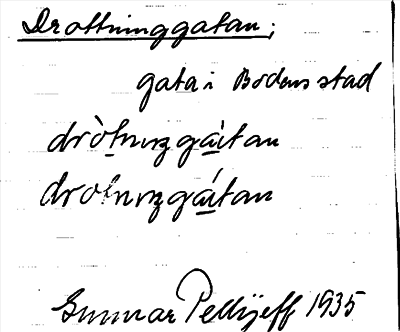 Drottninggatan;
gata i Bodens stad
dròtnıŋgàtan
drotnıŋgátan
Gunnar Pellijeff 1935